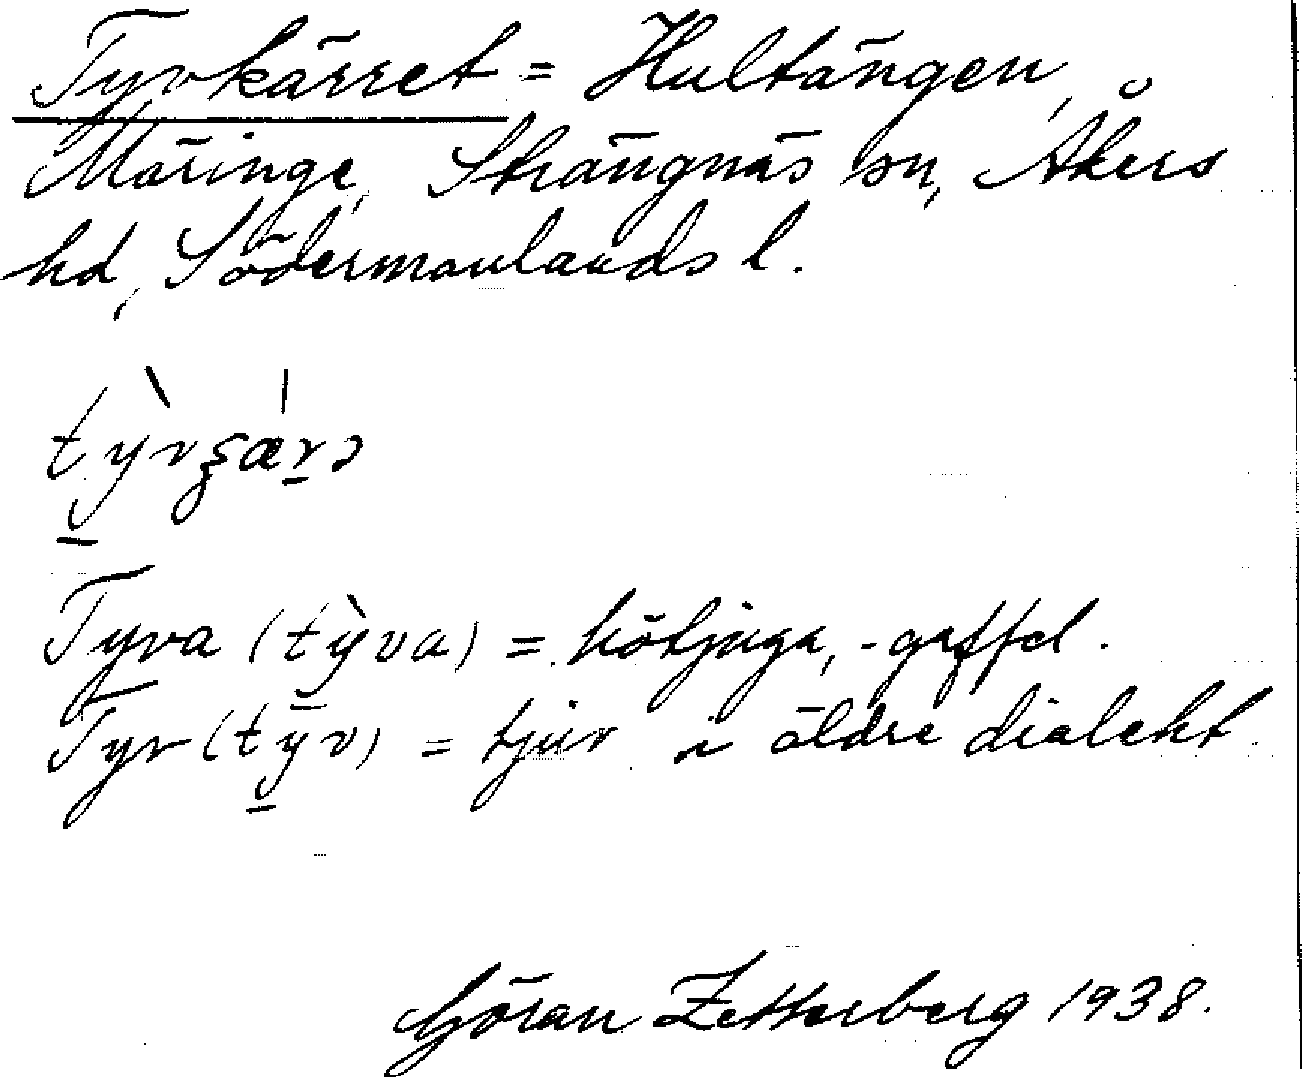 Tyvkärret = Hultängen,
Märinge, Strängnäs sn, Åkers
hd, Södermanlands l.
Tyva (tỳva) = hötjuga, -gaffel.
Tyv (tȳv) = tjuv i äldre dialekt.
Göran Zetterberg 1938.